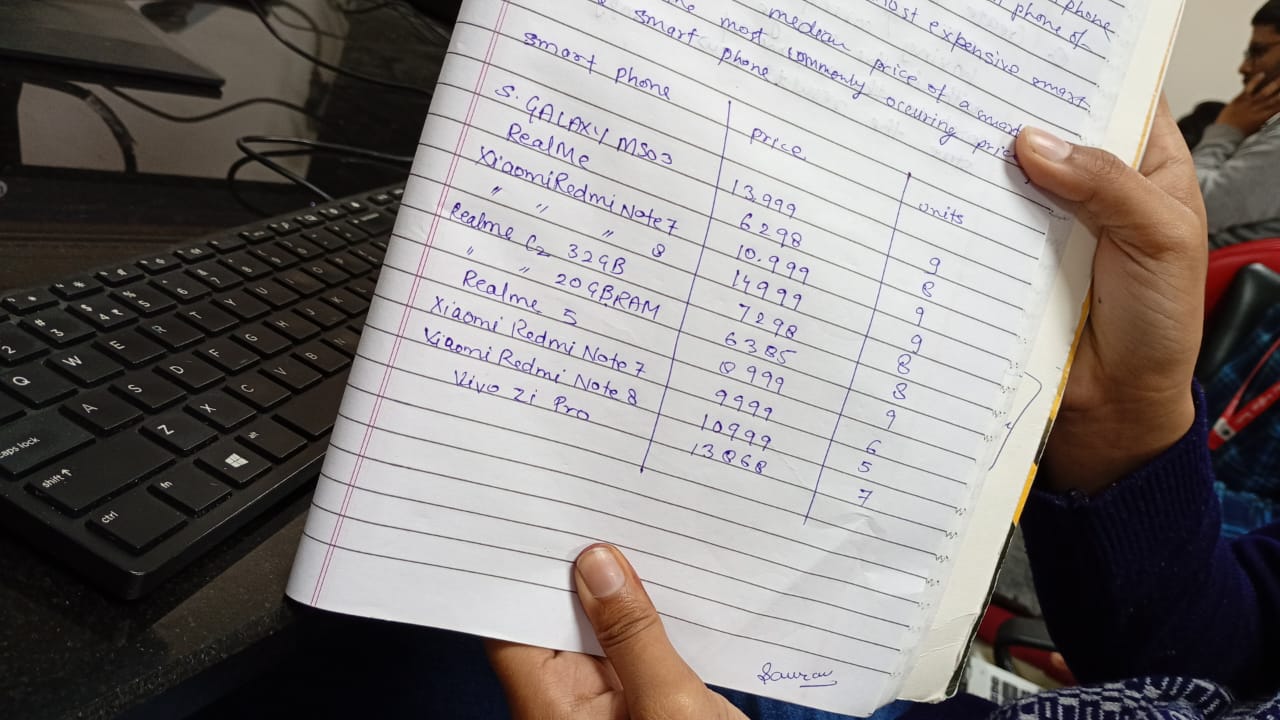 phone
phone of
most expensive smart
median price of a smart
the most commonly occuring price
smart phone
smart phone price units
S. GALAXY MS03 13,999 9
RealMe 6298 8
Xiaomi Redmi Note 7 10.999 9
" " " 8 14999 9
Realme C2 32GB 7298 8
" " 20GBRAM 6385 8
Realme 5 8999 9
Xiaomi Redmi Note 7 9999 6
Xiaomi Redmi Note 8 10999 5
Vivo Zi Pro 13868 7